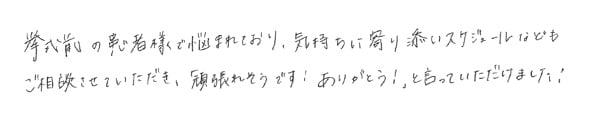 挙式前の患者様で悩まれており、気持ちに寄り添いスケジュールなども
ご相談させていただき、頑張れそうです！ありがとう！、と言っていただけました！